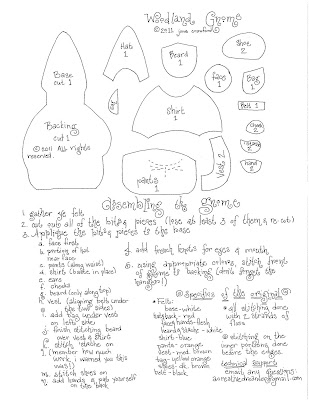 Woodland Gnome
© 2011
Base
cut 1
Backing
cut 1
© 2011 All rights
reserved.
Hat
1
Beard
1
Shoe
2
Face
1
Bag
1
Belt 1
Shirt
1
Vest 2
pants 1
hand
2
Assembling the Gnome
1. gather ye felt
2. cut out all of the bits & pieces (lose at least 3 of them & re-cut)
3. Applique the bits & pieces to the base
a. face first
b. portion of hat
near face
c. pants (along waist)
d. shirts (battle in place)
e. ears
f. cheeks
g. beard (only along top)
h. Vest (aligning belts under
i. add bag under vest
on left side
j. finish stitching beard
over vest & shirt
work, I warned you this
was it)
n. add hands & pat yourself
on the back
4. add french knots for eyes & mouth
5. using appropriate colors, stitch front
of gnome to backing (don't forget the
hanger!)
Specifics of the original
• Felt:
base-white
face, hands-flesh
beard-white
shirt-blue
pants-orange
vest-med brown
bag-yellow orange
shoes-dk. brown
belt-black
* all stitching done
with 2 strands of
floss
* stitching on
the inner portions, done
before the edges
technical support
email any questions: